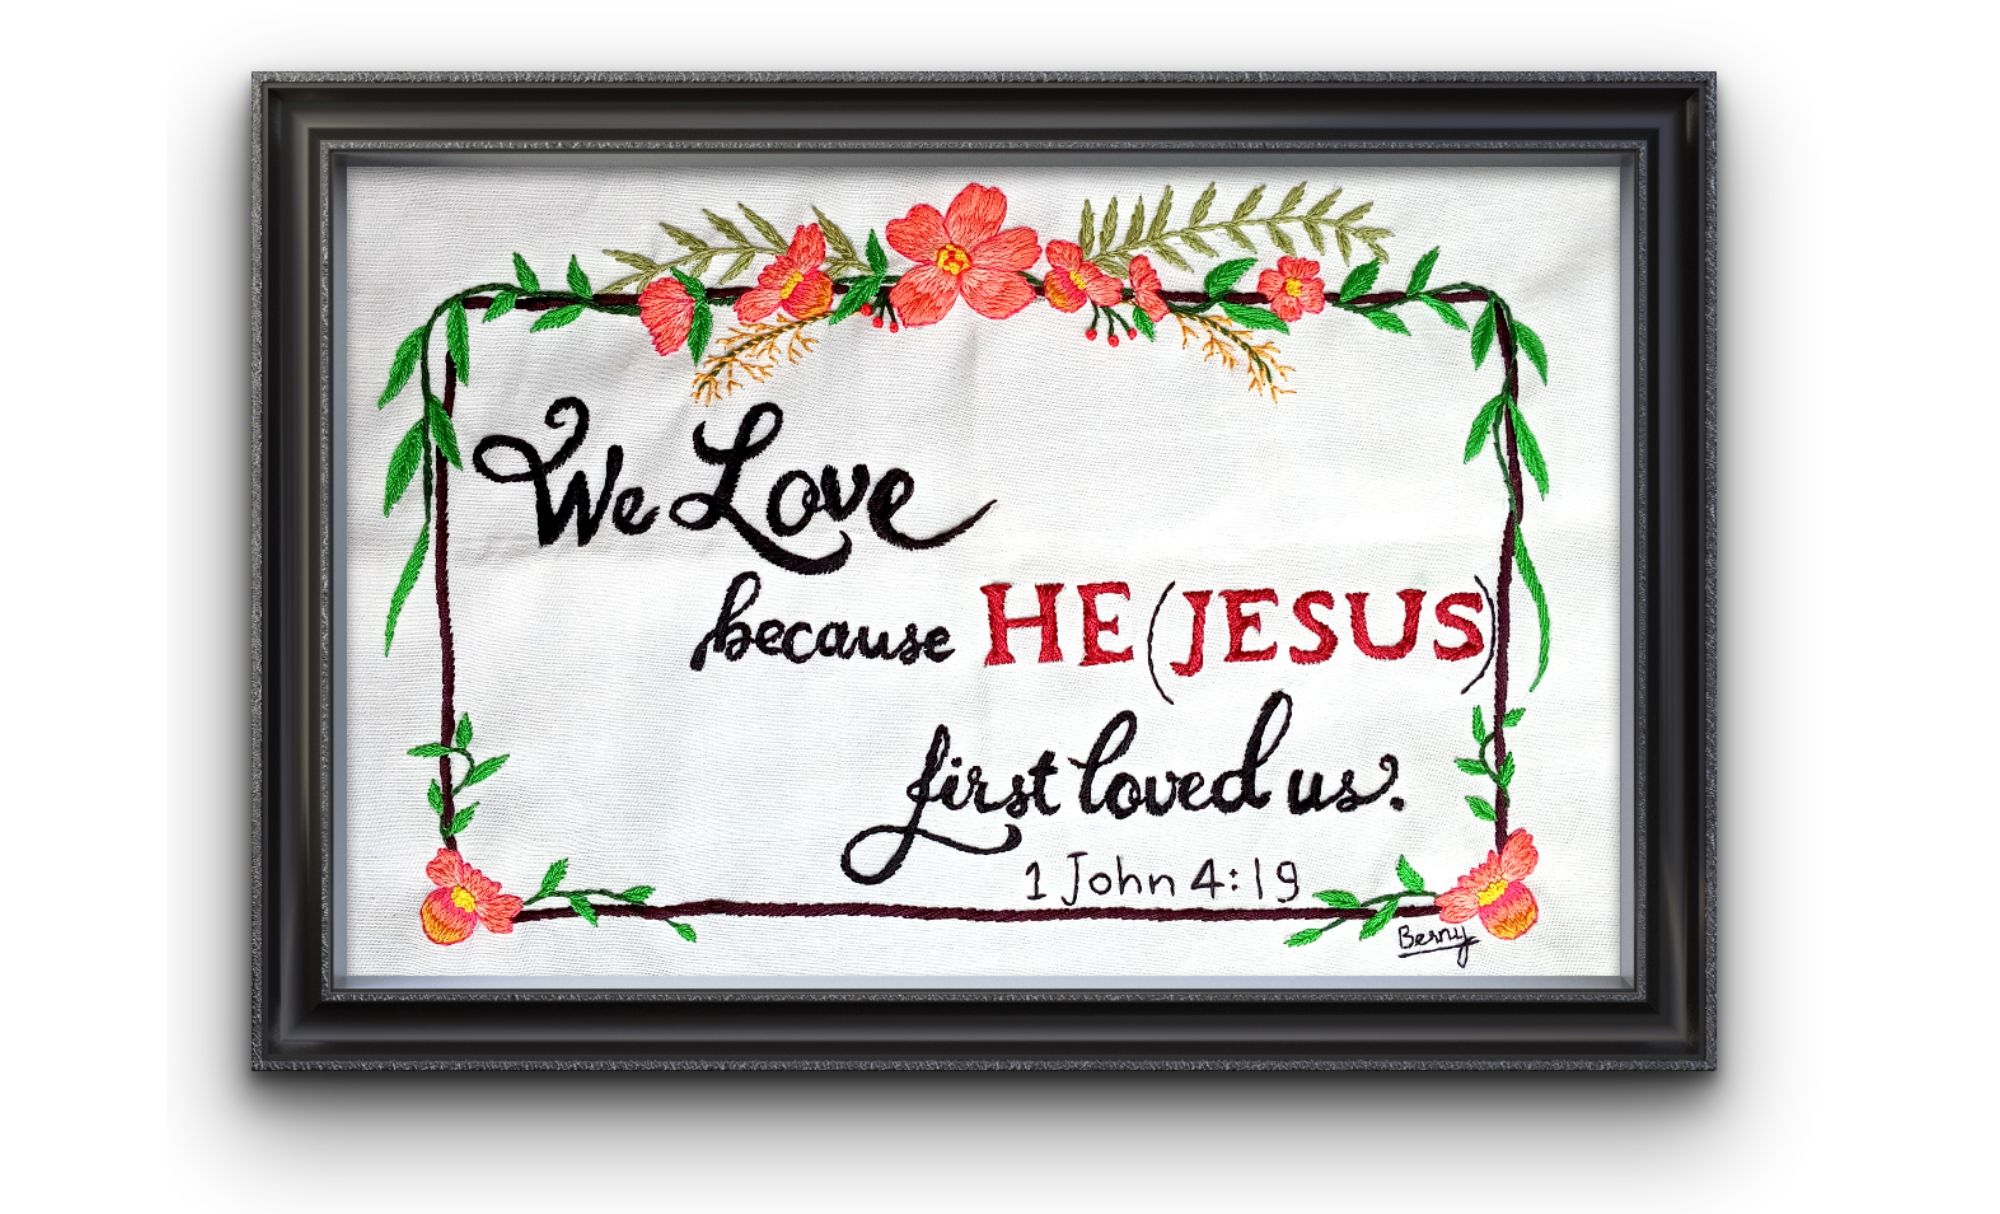 We Love
because HE (JESUS)
first loved us.
1 John 4:19
Berny